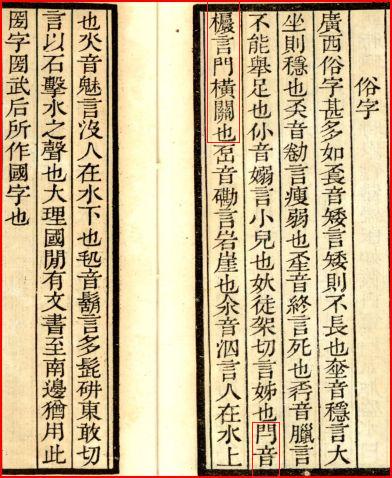 俗字
廣西俗字甚多如音矮言矮則不長也音穩言大
坐則穩也奀音言瘦弱也音終言死也音臘言
不能舉足也仦音嫋言小兒也徒架切言姊也閂音
言門橫關也音磡言岩崖也汆音泅言人在水上
也氼音魅言沒人在水下也音鬍言多髭東敢切
言以石擊水之聲也大理國閒有文書至南邊猶用此
圀字圀武后所作國字也